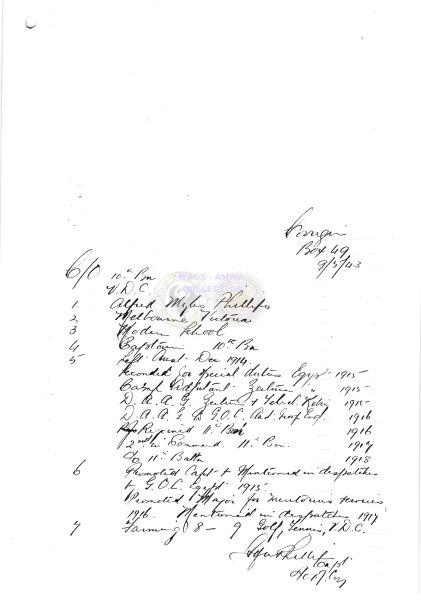 Gnowangerup
Box 49
9/3/43
C/O 10th Bn
V.D.C.
WAGS - AMWA
COLLECTION
1 Alfred Myles Phillips
2 Melbourne Victoria
3 Modern School
4 Captain 10th Bn
5 Left Aust Dec 1914.
Seconded for special duties Egypt 1915
Camp Adjutant Zeitoun " 1915
D.A.A.G. Zeitoun & Tel-el-Kebir 1915
D.A.A.G. to G.O.C. Aust. 1916
Rejoined 11th Bn 1916
2nd in Command 11th Bn. 1917
C/O 11th Battn 1918
6 Promoted Capt & Mentioned in despatches
by G.O.C. Egypt 1915
Promoted Major for meritorious services
1916. Mentioned in despatches 1917
7 Farming 8 - 9 Golf, Tennis, V.D.C.
Phillips
Capt.